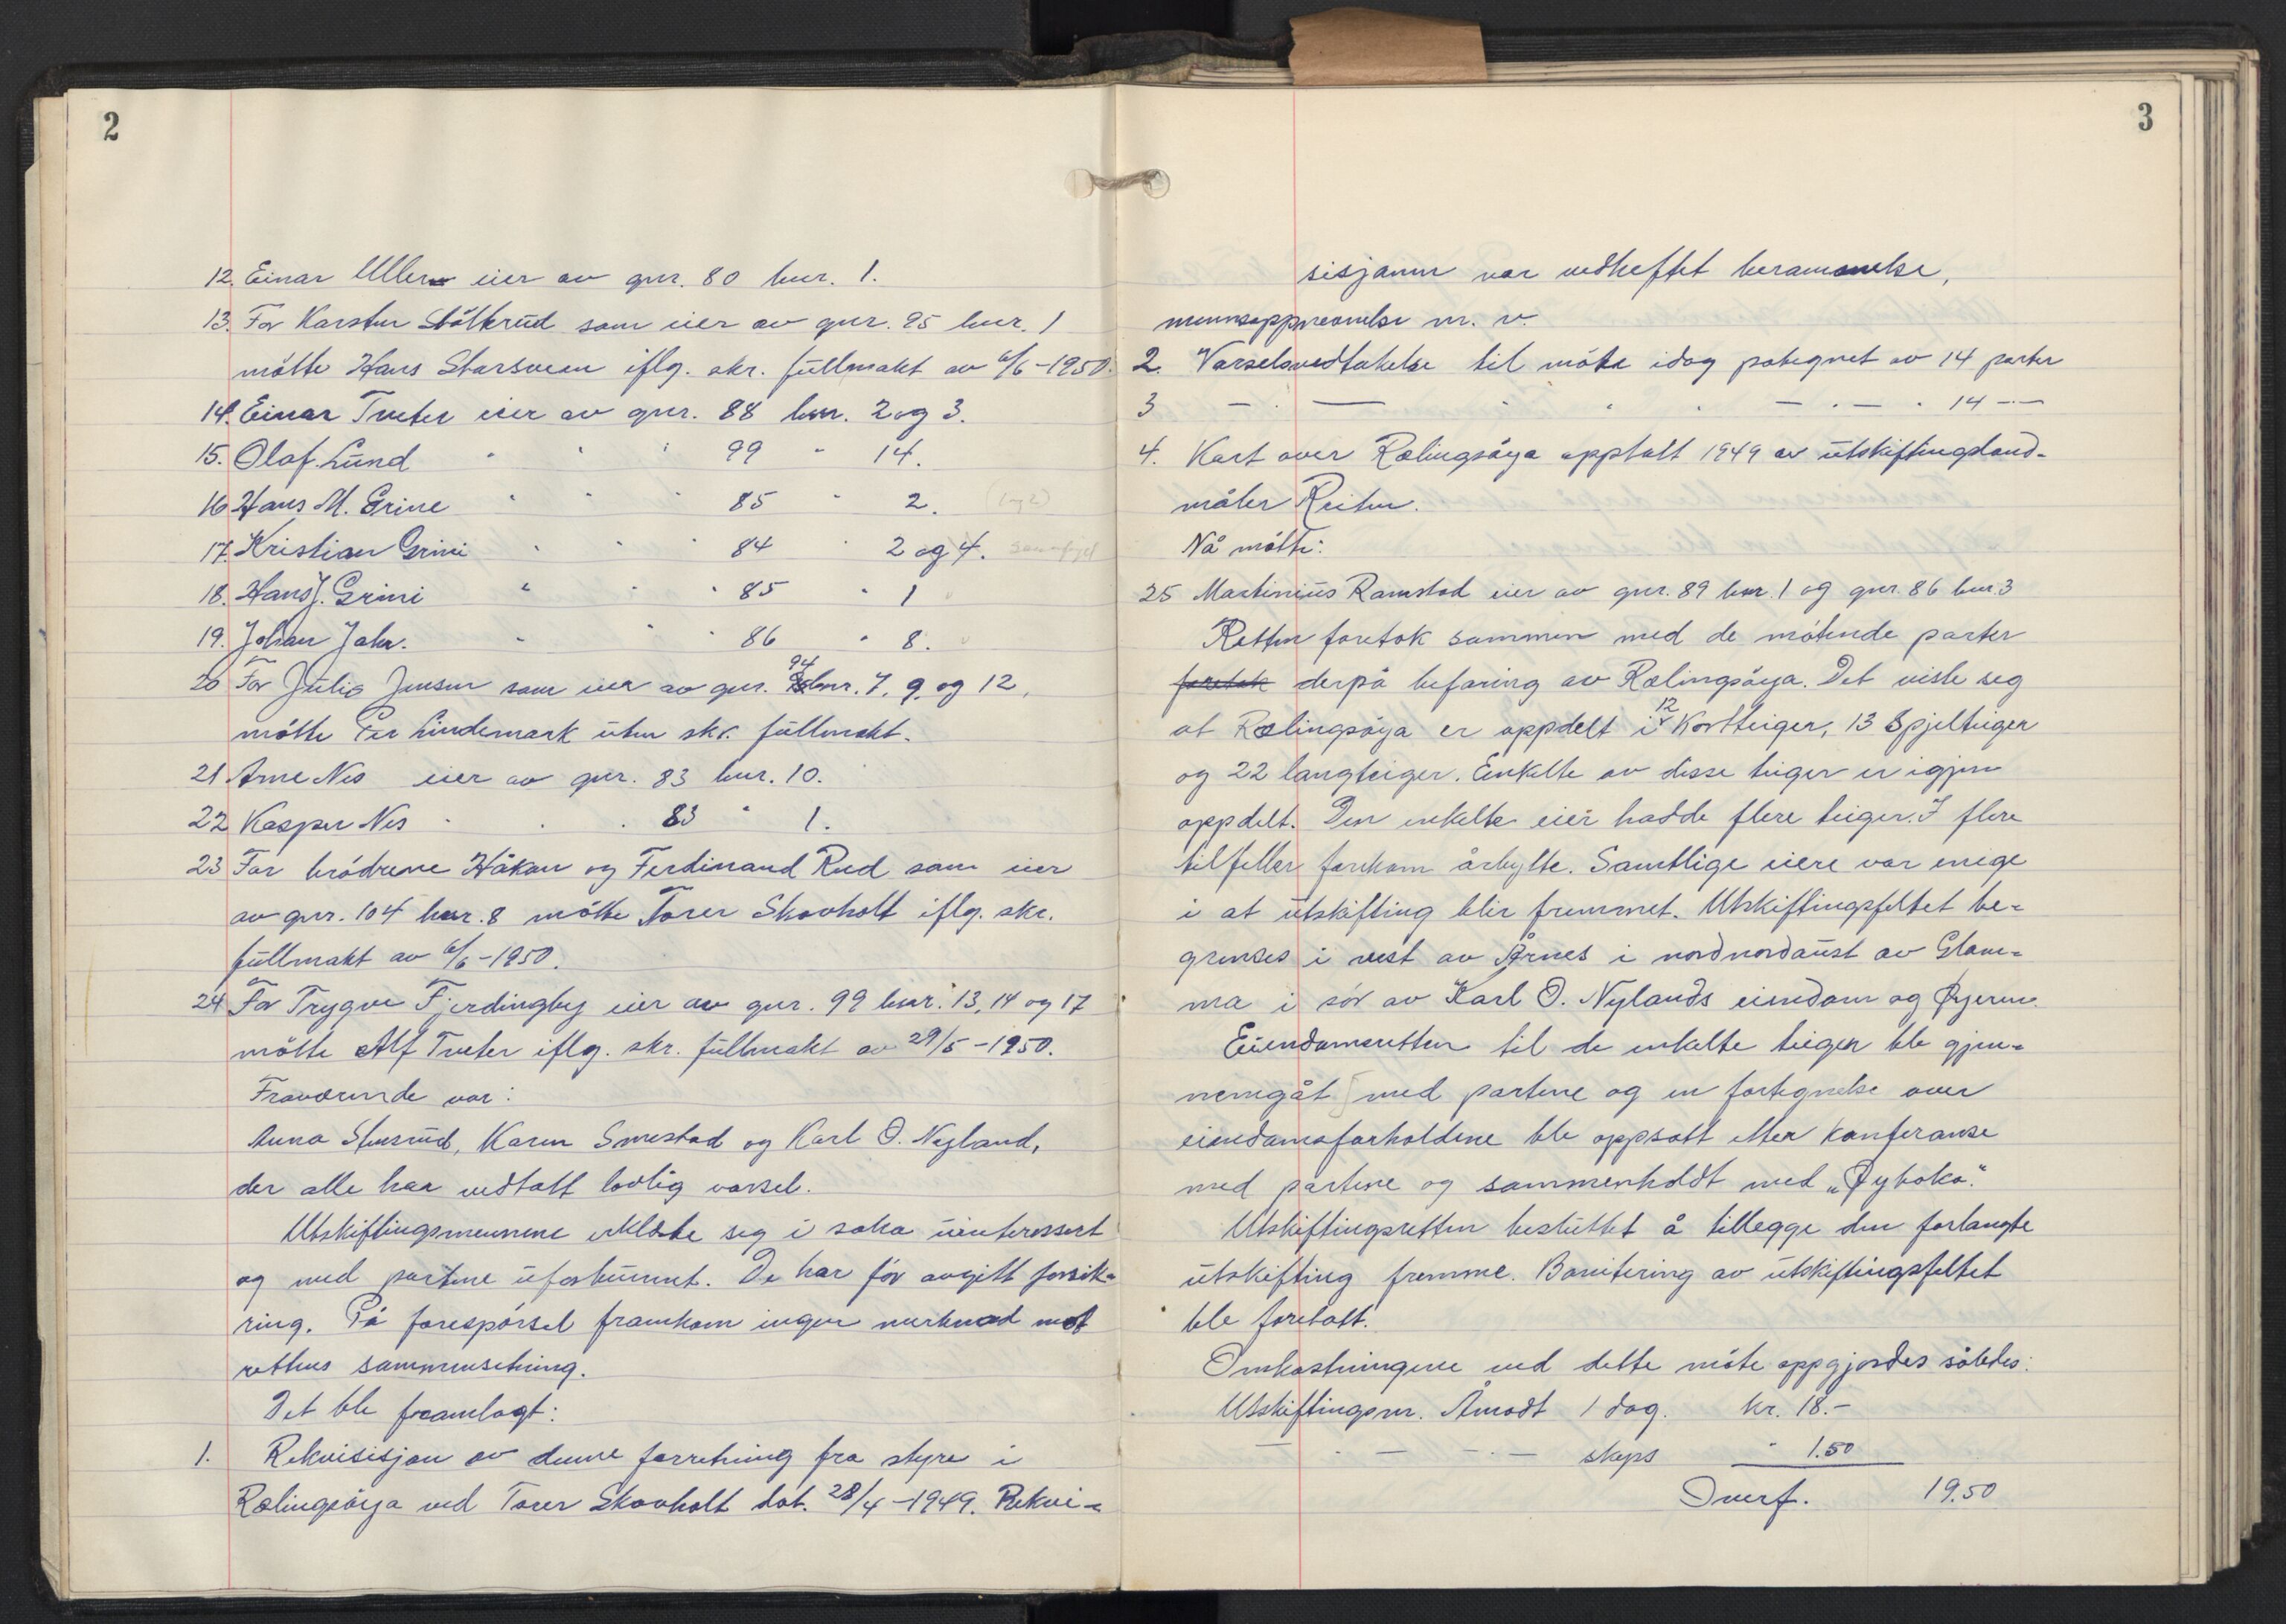 2
12. Einar Ullern eier av gnr. 80 bnr. 1.
13. For Karsten Stålkrud som eier av gnr. 95 bnr. 1
møtte Hans Starsveen iflg. skr. fullmakt av 6/6-1950.
14. Einar Tveter eier av gnr. 88 bnr. 2 og 3.
15. Olaf Lund " " " 99 " 14.
16 Hans M. Grine " " " 85 " 2. (og 2)
17. Kristian Grini " " " 84 " 2 og 4.
18. Hans J. Grini " " " 85 " 1
19. Johan Jahr. " " " 86 " 8.
20 For Julie Jensen som eier av gnr. 94 bnr. 7, 9 og 12,
møtte Per Lindemark uten skr. fullmakt.
21 Arne Nes eier av gnr. 83 bnr. 10.
22 Kasper Nes " " " 83 " 1.
23 For brødrene Håkon og Ferdinand Rud som eier
av gnr. 104 bnr. 8 møtte Torer Skovholt iflg. skr.
fullmakt av 6/6-1950.
24 For Trygve Fjerdingby eier av gnr. 99 bnr. 13, 14 og 17
møtte Alf Tveter iflg. skr. fullmakt av 29/5-1950.
Fraværende var:
Anna Stensrud, Karen Smestad og Karl O. Nyland,
der alle har vedtatt lovlig varsel.
Utskiftingsmennene erklærte seg i saka uinteressert
og med partene ubeslektet. De har før avgitt forsik-
ring. På forespørsel framkom ingen merknad mot
rettens sammensetning.
Det ble framlagt:
1. Rekvisisjon av denne forretning fra styre i
Rælingsøya ved Torer Skovholt dat. 28/4-1949. Rekvi-
3
sisjonen var vedheftet berammelse,
mennsoppnevnelse m. v.
2. Varselsvedtakelse til møte idag påtegnet av 14 parter
3 — " — " " " — " — " 14 —"—
4. Kart over Rælingsøya opptatt 1949 av utskiftingsland-
måler Reiten.
Nå møtte:
25 Martinius Ramstad eier av gnr. 89 bnr. 1 og gnr. 86 bnr. 3
Retten foretok sammen med de møtende parter
foretok derpå befaring av Rælingsøya. Det viste seg
at Rælingsøya er oppdelt i 12 Kortteiger, 13 Spjelteiger
og 22 langteiger. Enkelte av disse teiger er igjen
oppdelt. Den enkelte eier hadde flere teiger. I flere
tilfeller forekom årbytte. Samtlige eiere var enige
i at utskifting blir fremmet. Utskiftingsfeltet be-
grenses i vest av Årnes i nordnordaust av Glom-
ma i sør av Karl O. Nylands eiendom og Øyeren.
Eiendomsretten til de enkelte teiger ble gjen-
nemgåt med partene og en fortegnelse over
eiendomsforholdene ble oppsatt etter konferanse
med partene og sammenholdt med „Øyboka".
Utskiftingsretten besluttet å tillegge den forlangte
utskifting fremme. Bonitering av utskiftingsfeltet
ble foretatt.
Omkostningene ved dette møte oppgjordes således:
Utskiftingsm. Åmodt 1 dag. kr. 18.-
— " — — " — skyss " 1.50
Overf. 19.50